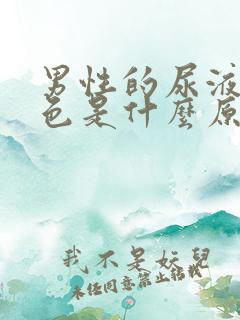 男性的尿液
色是什麼原
我不是妖兒
未经同意禁止转载